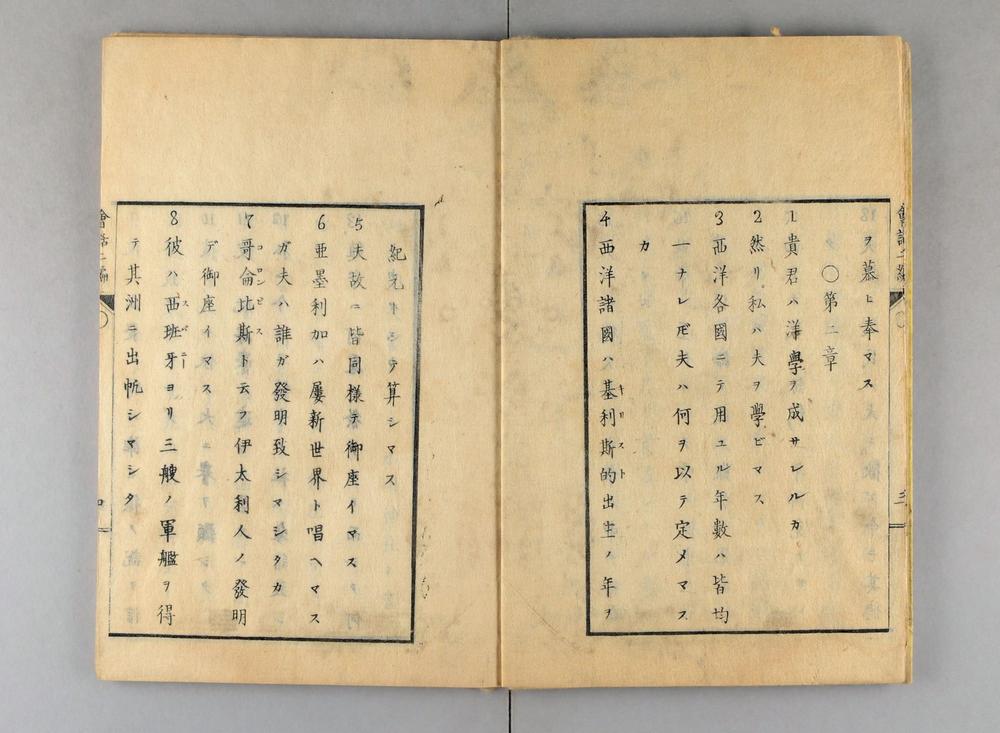 ヲ慕ヒ奉マス
〇第二章
1 貴君ハ洋學ヲ成サレルカ
2 然リ私ハ夫ヲ學ビマス
3 西洋各國ニテ用ユル年數ハ皆均
一ナレ𪜈夫ハ何ヲ以テ定メマス
カ
4 西洋諸國ハ基利斯的出生ノ年ヲ
キリスト
紀元トシテ算シマス
5 夫故ニ皆同様テ御座イマス
6 亜墨利加ハ屢新世界ト唱ヘマス
ガ夫ハ誰ガ發明致シマシタカ
7 哥侖比斯ト云フ伊太利人ノ發明
コロンビス
デ御座イマス
8 彼ハ西班牙ヨリ三艘ノ軍艦ヲ得
スパニー
テ其洲ニ出帆シマシタ
會話二編
三
會話二編
四